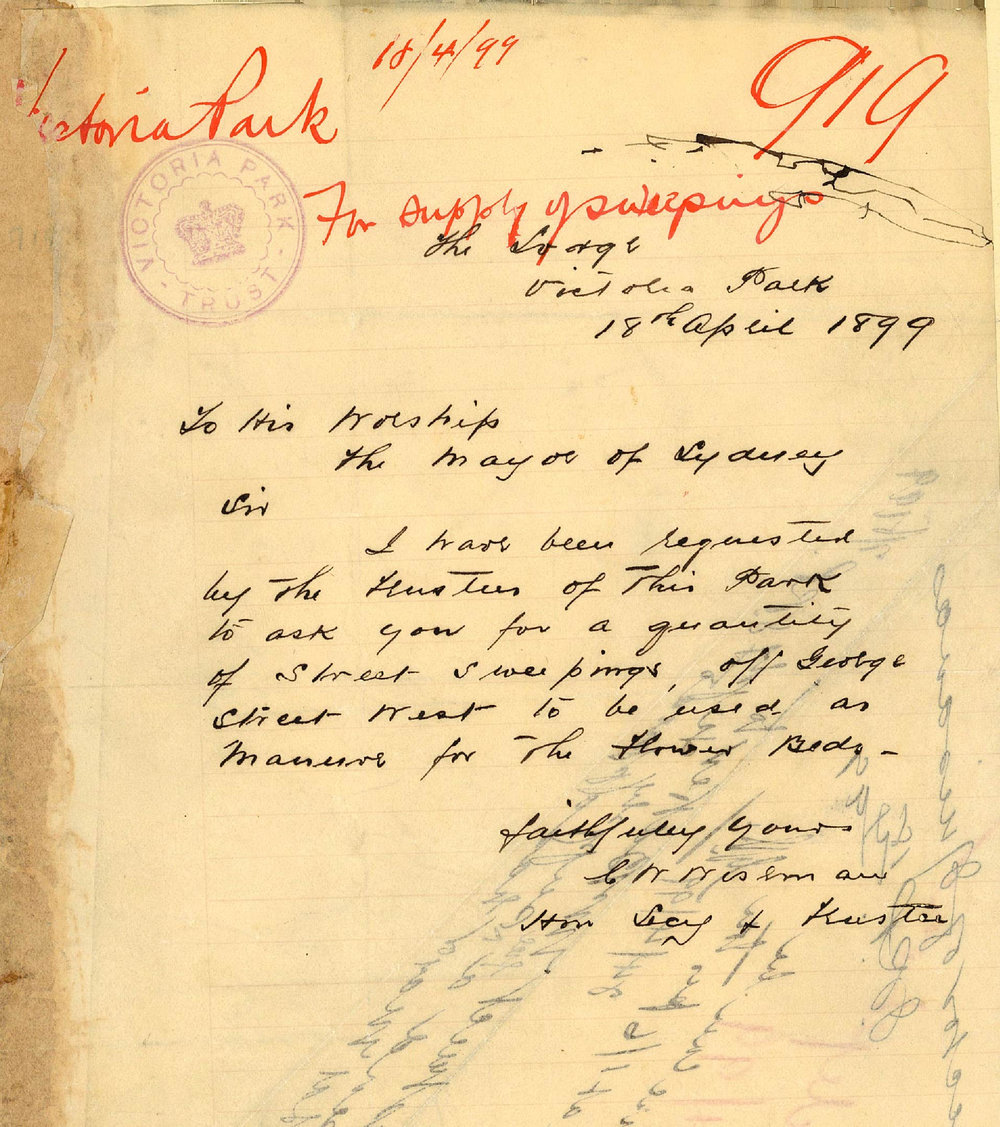 18/4/99
Victoria Park
919
VICTORIA PARK
TRUST
For supply of sweepings
The Lodge
Victoria Park
18th April 1899
To His Worship
The Mayor of Sydney
Sir
I have been requested
by the Trustees of this Park
to ask you for a quantity
of Street Sweepings, off George
Street West to be used as
Manure for the Flower Beds -
faithfully yours
C W Wiseman
Hon Secy & Trustee